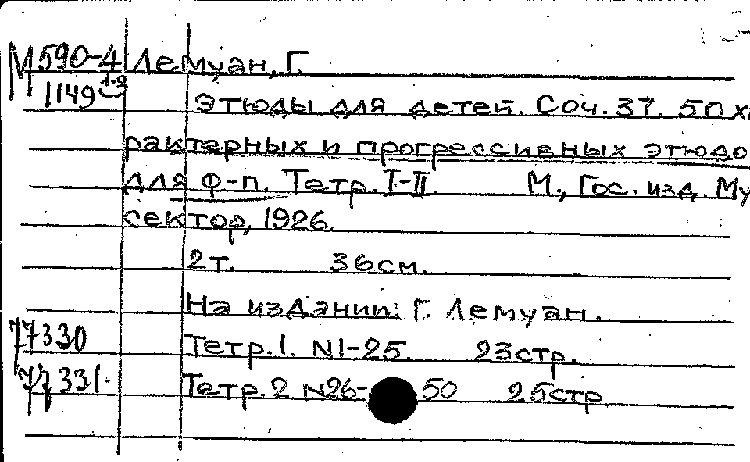 М 590-4 Лемуан, Г.
1149
Этюды для детей. Соч. 37. 50 ха
рактерных и прогрессивных этюдо
для ф-п. Тетр. I-II. М., Гос. изд. Му
сектор, 1926.
2т. 36см.
На издании: Г. Лемуан.
77330 Тетр. 1. N1-25. 23стр.
77331. Тетр. 2 N26-50 25стр